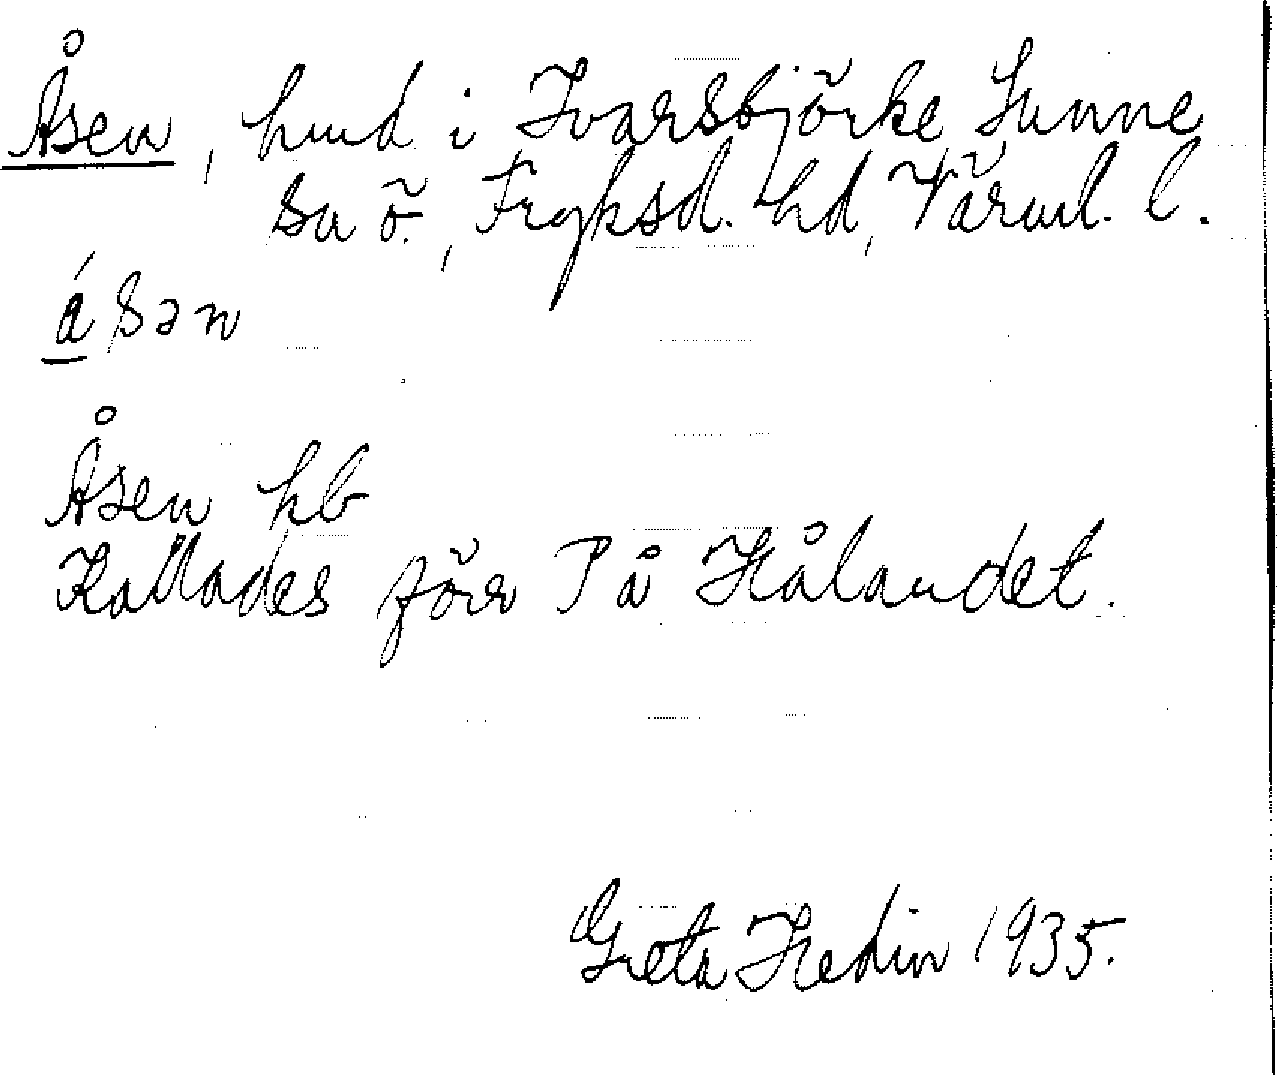 Åsen, hmd i Ivarsbjörke, Sunne
sn ö., Fryksd. hd, Värml. l.
á̱sən
Åsen kb
Kallades förr På Hålandet.
Greta Hedin 1935.